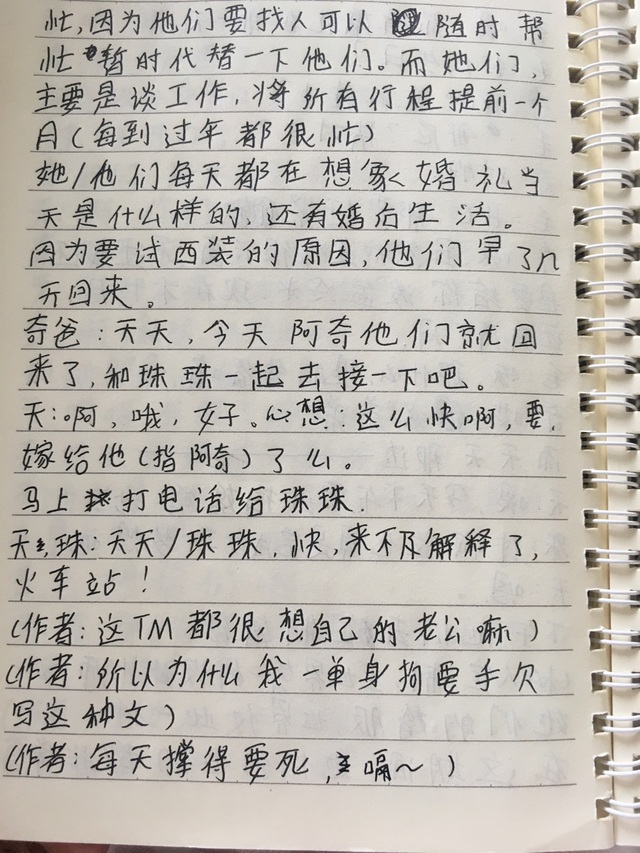 忙,因为他们要找人可以随时帮
忙暂时代替一下他们。而她们,
主要是谈工作,将所有行程提前一个
月(每到过年都很忙)
她/他们每天都在想象婚礼当
天是什么样的,还有婚后生活。
因为要试西装的原因,他们早了几
天回来。
奇爸:天天,今天阿奇他们就回
来了,和珠珠一起去接一下吧。
天:啊,哦,好。心想:这么快啊,要
嫁给他(指阿奇)了么。
马上打电话给珠珠.
天,珠:天天/珠珠,快,来不及解释了,
火车站!
(作者:这TM都很想自己的老公嘛)
(作者:所以为什么我一单身狗要手欠
写这种文)
(作者:每天撑得要死,嗝~)